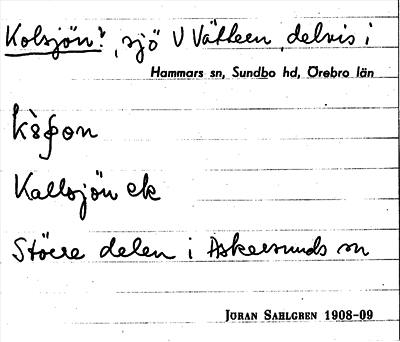 Kolsjön?, sjö V Vättern, delvis i
Hammars sn, Sundbo hd, Örebro län
Kallsjön ek
Större delen i Askersunds sn
JÖRAN SAHLGREN 1908-09